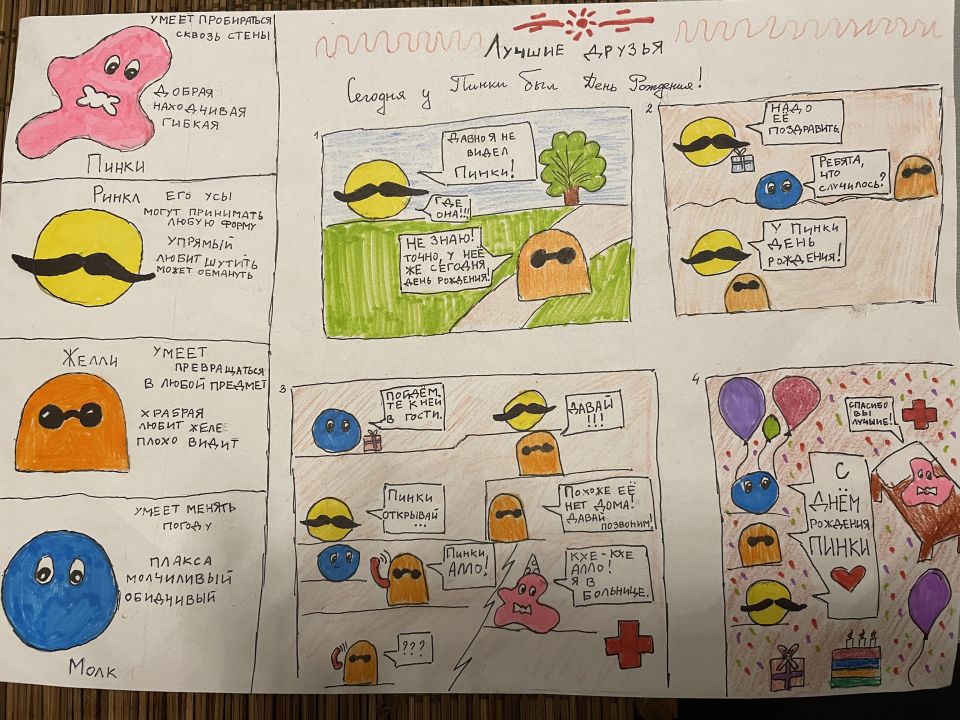 Умеет пробираться
сквозь стены
Добрая
находчивая
гибкая
Пинки
Ринкл
Его усы
могут принимать
любую форму
упрямый
любит шутить
может обмануть
Желли
Умеет
превращаться
в любой предмет
храбрая
любит желе
плохо видит
Умеет менять
погоду
плакса
молчиливый
обидчивый
Молк
Лучшие друзья
Сегодня у Пинки был День Рождения!
1
Давно я не
видел
Пинки!
Где
она!!!
Не знаю!
Точно, у неё
же сегодня
день рождения!
2
Надо
её
поздравить.
Ребята,
что
случилось?
У Пинки
день
рождения!
3
Пойдём-
те к ней
в гости.
Давай
!!!
Пинки
открывай
...
Похоже её
нет дома!
Давай
позвоним!
Пинки,
Алло!
Кхе-кхе
Алло!
Я в
больнице.
???
4
Спасибо
вы
лучшие!
С
Днём
рождения
Пинки